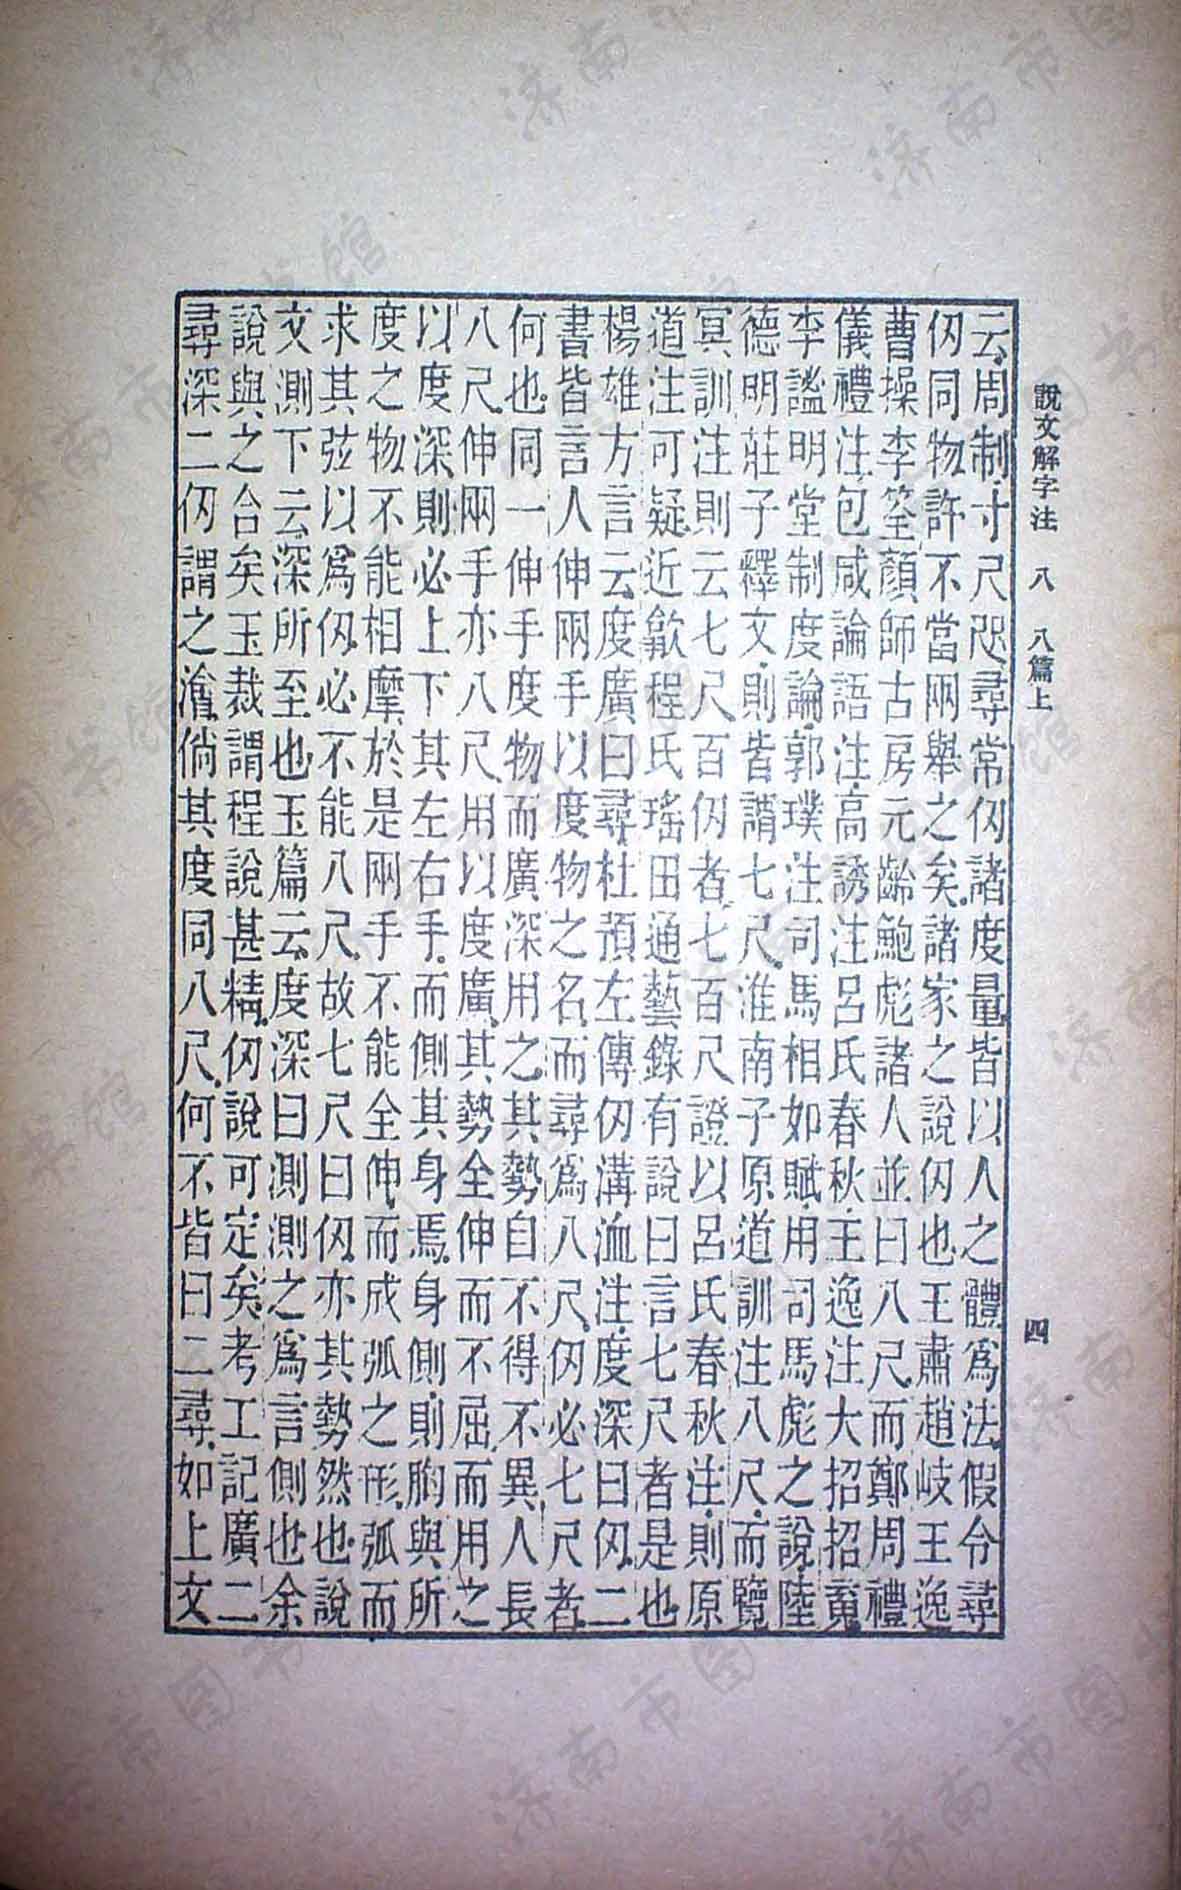 說文解字注 八 八篇上
四
云周制寸尺咫尋常仞諸度量皆以人之體爲法假令尋
仞同物許不當兩舉之矣諸家之說仞也王肅趙岐王逸
曹操李筌顏師古房元齡鮑彪諸人並曰八尺而鄭周禮
儀禮注包咸論語注高誘注呂氏春秋王逸注大招招䰟
李謐明堂制度論郭璞注司馬相如賦用司馬彪之說陸
德明莊子釋文則皆謂七尺淮南子原道訓注八尺而覽
冥訓注則云七尺百仞者七百尺證以呂氏春秋注則原
道注可疑近歙程氏瑤田通藝錄有說曰言七尺者是也
楊雄方言云度廣曰尋杜預左傳仞溝洫注度深曰仞二
書皆言人伸兩手以度物之名而尋爲八尺仞必七尺者
何也同一伸手度物而廣深用之其勢自不得不異人長
八尺伸兩手亦八尺用以度廣其勢全伸而不屈而用之
以度深則必上下其左右手而側其身焉身側則胸與所
度之物不能相摩於是兩手不能全伸而成弧之形弧而
求其弦以爲仞必不能八尺故七尺曰仞亦其勢然也說
文測下云深所至也玉篇云度深曰測測之爲言側也余
說與之合矣玉裁謂程說甚精仞說可定矣考工記廣二
尋深二仞謂之澮倘其度同八尺何不皆曰二尋如上文